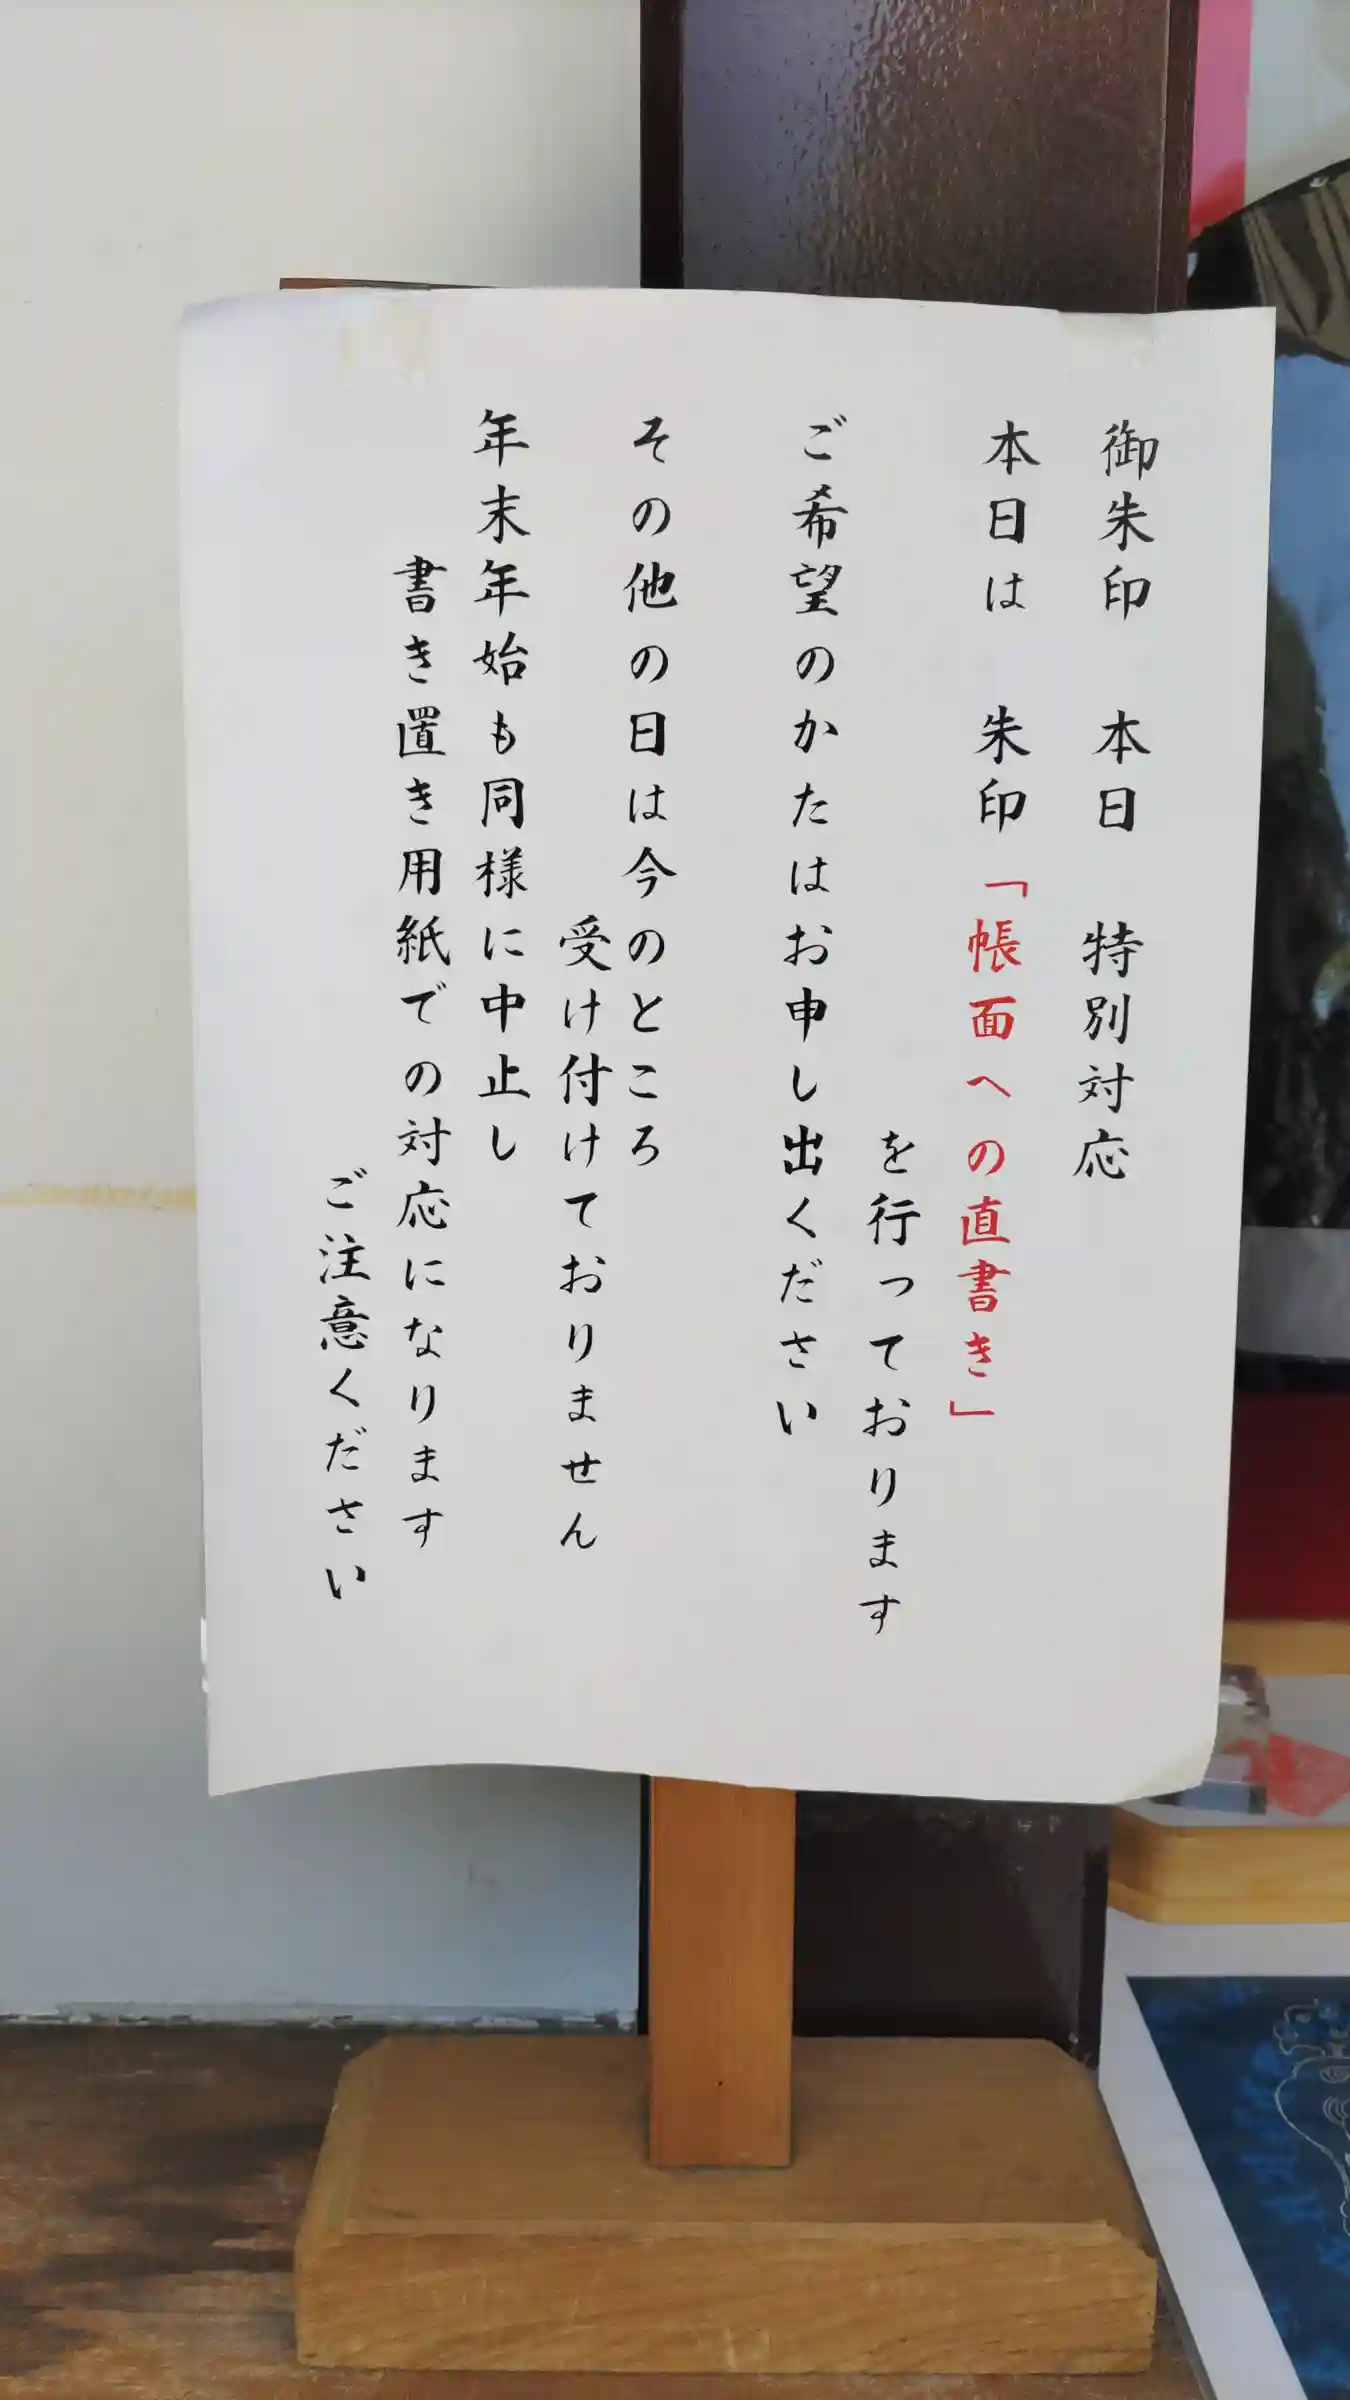 御朱印 本日 特別対応
本日は 朱印「帳面への直書き」
を行っております
ご希望のかたはお申し出ください
その他の日は今のところ
受け付けておりません
年末年始も同様に中止し
書き置き用紙での対応になります
ご注意ください